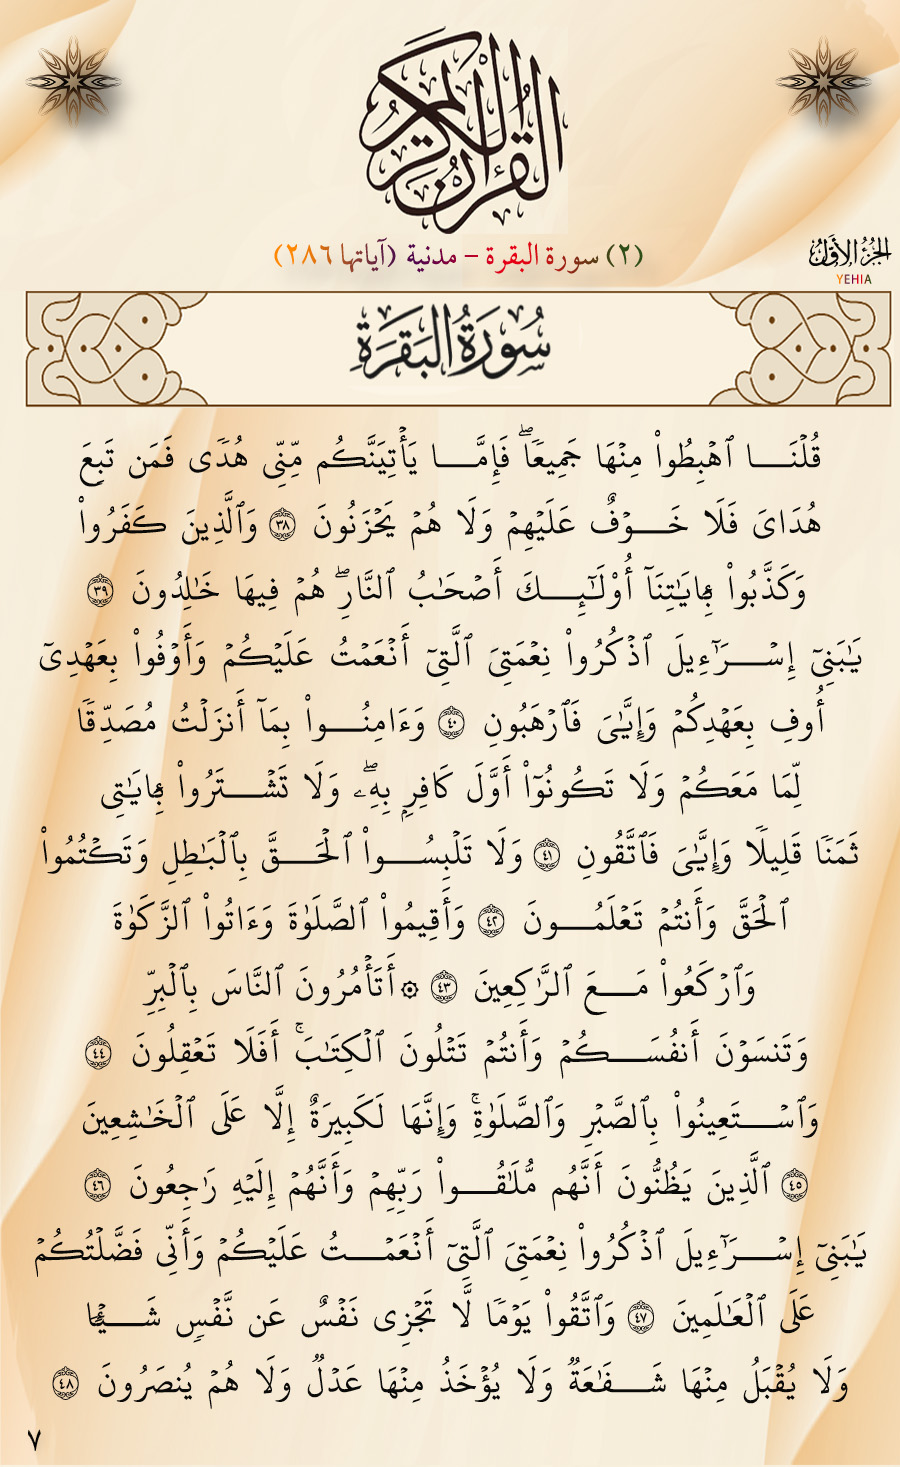 القرآن الكريم
(٢) سورة البقرة – مدنية (آياتها ٢٨٦)
الجزء الأول
YEHIA
سُورَةُ البَقَرَةِ
قُلۡنَا ٱهۡبِطُواْ مِنۡهَا جَمِيعٗاۖ فَإِمَّا يَأۡتِيَنَّكُم مِّنِّي هُدٗى فَمَن تَبِعَ
هُدَايَ فَلَا خَوۡفٌ عَلَيۡهِمۡ وَلَا هُمۡ يَحۡزَنُونَ ٣٨ وَٱلَّذِينَ كَفَرُواْ
وَكَذَّبُواْ بِـَٔايَٰتِنَآ أُوْلَٰٓئِكَ أَصۡحَٰبُ ٱلنَّارِۖ هُمۡ فِيهَا خَٰلِدُونَ ٣٩
يَٰبَنِيٓ إِسۡرَٰٓءِيلَ ٱذۡكُرُواْ نِعۡمَتِيَ ٱلَّتِيٓ أَنۡعَمۡتُ عَلَيۡكُمۡ وَأَوۡفُواْ بِعَهۡدِيٓ
أُوفِ بِعَهۡدِكُمۡ وَإِيَّٰيَ فَٱرۡهَبُونِ ٤٠ وَءَامِنُواْ بِمَآ أَنزَلۡتُ مُصَدِّقٗا
لِّمَا مَعَكُمۡ وَلَا تَكُونُوٓاْ أَوَّلَ كَافِرِۭ بِهِۦۖ وَلَا تَشۡتَرُواْ بِـَٔايَٰتِي
ثَمَنٗا قَلِيلٗا وَإِيَّٰيَ فَٱتَّقُونِ ٤١ وَلَا تَلۡبِسُواْ ٱلۡحَقَّ بِٱلۡبَٰطِلِ وَتَكۡتُمُواْ
ٱلۡحَقَّ وَأَنتُمۡ تَعۡلَمُونَ ٤٢ وَأَقِيمُواْ ٱلصَّلَوٰةَ وَءَاتُواْ ٱلزَّكَوٰةَ
وَٱرۡكَعُواْ مَعَ ٱلرَّٰكِعِينَ ٤٣ ۞أَتَأۡمُرُونَ ٱلنَّاسَ بِٱلۡبِرِّ
وَتَنسَوۡنَ أَنفُسَكُمۡ وَأَنتُمۡ تَتۡلُونَ ٱلۡكِتَٰبَۚ أَفَلَا تَعۡقِلُونَ ٤٤
وَٱسۡتَعِينُواْ بِٱلصَّبۡرِ وَٱلصَّلَوٰةِۚ وَإِنَّهَا لَكَبِيرَةٌ إِلَّا عَلَى ٱلۡخَٰشِعِينَ
٤٥ ٱلَّذِينَ يَظُنُّونَ أَنَّهُم مُّلَٰقُواْ رَبِّهِمۡ وَأَنَّهُمۡ إِلَيۡهِ رَٰجِعُونَ ٤٦
يَٰبَنِيٓ إِسۡرَٰٓءِيلَ ٱذۡكُرُواْ نِعۡمَتِيَ ٱلَّتِيٓ أَنۡعَمۡتُ عَلَيۡكُمۡ وَأَنِّي فَضَّلۡتُكُمۡ
عَلَى ٱلۡعَٰلَمِينَ ٤٧ وَٱتَّقُواْ يَوۡمٗا لَّا تَجۡزِي نَفۡسٌ عَن نَّفۡسٖ شَيۡـٔٗا
وَلَا يُقۡبَلُ مِنۡهَا شَفَٰعَةٞ وَلَا يُؤۡخَذُ مِنۡهَا عَدۡلٞ وَلَا هُمۡ يُنصَرُونَ ٤٨
٧